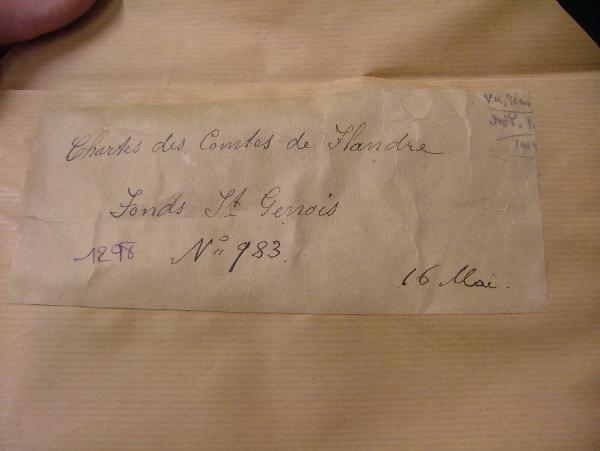 Chartes des Comtes de Flandre
Fonds St Genois
1298 No 983.
16 Mai.